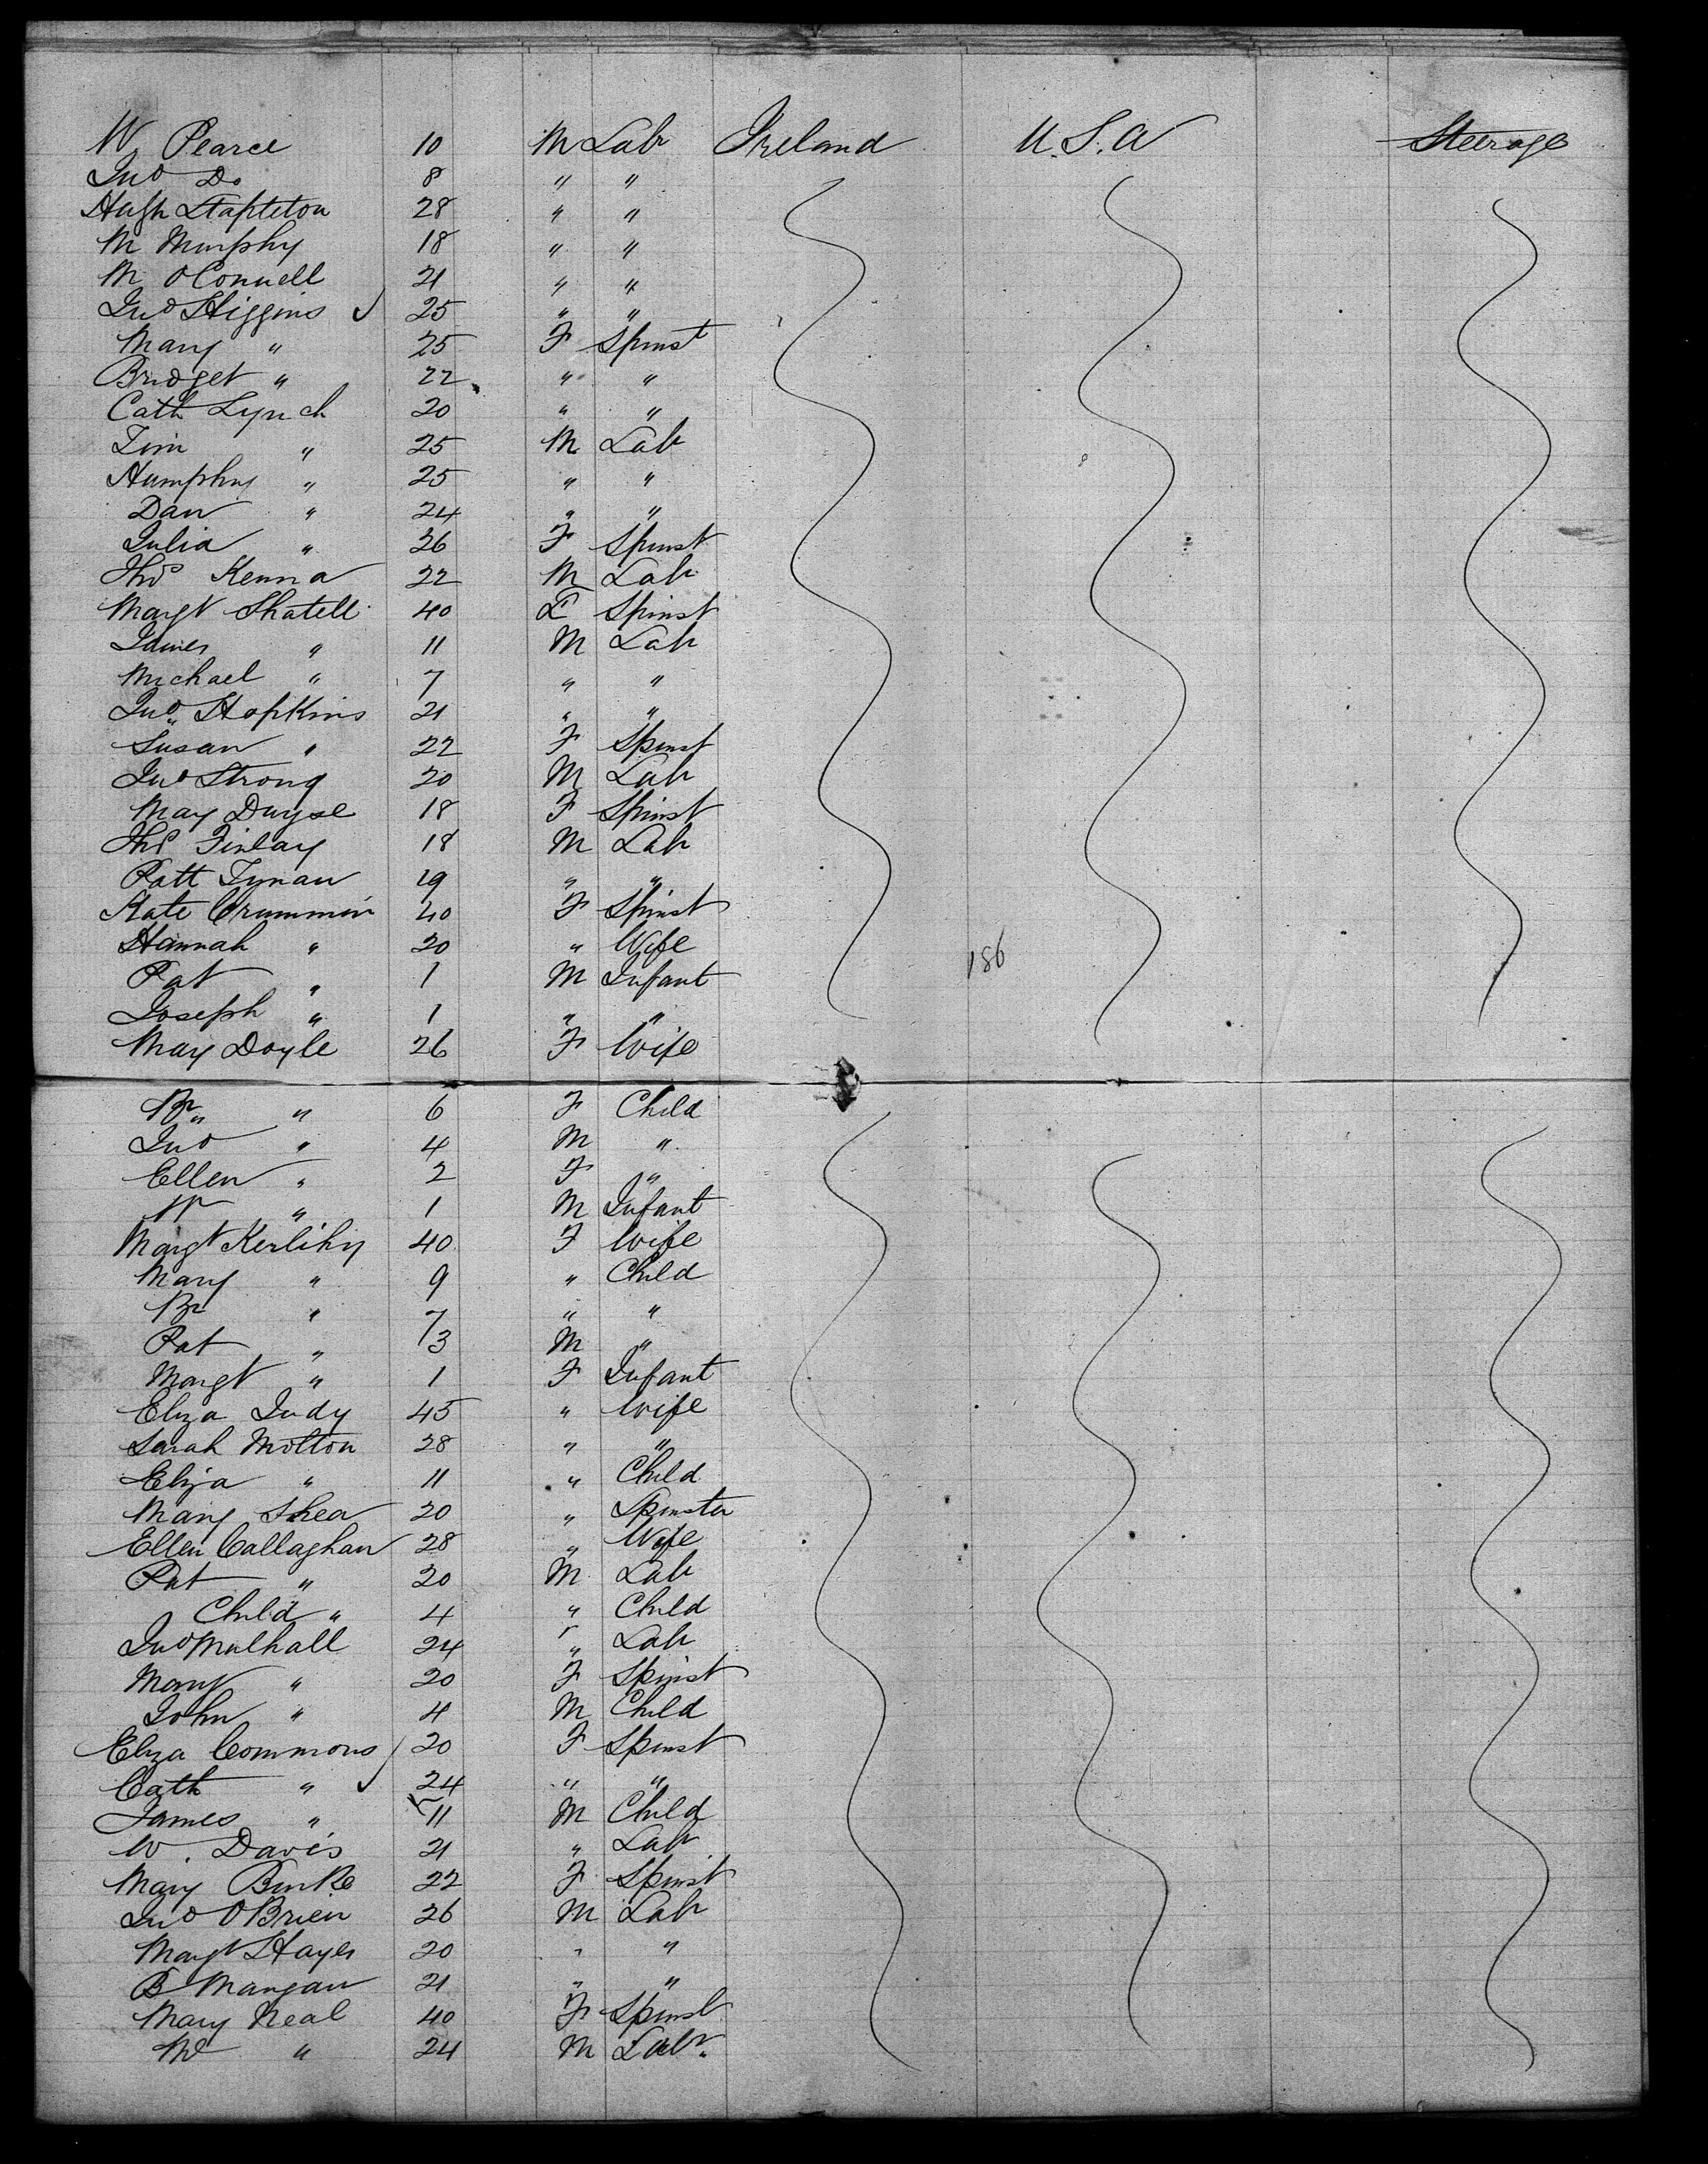 W. Pearce 10 M Lab Ireland U.S.A Steerage
Jno Do 8 " "
Hugh Stapleton 28 " "
M Murphy 18 " "
M OConnell 21 " "
Jno Higgins ✓ 25 " "
Mary " 25 F Spinst
Bridget " 22 " "
Cath Lynch 20 " "
Tim " 25 M Lab
Humphry " 25 " "
Dan " 24 " "
Julia " 26 F Spinst
Thos Kenna 22 M Lab
Margt Shatell 40 F Spinst
James " 11 M Lab
Michael " 7 " "
Jno Hopkins 21 " "
Susan " 22 F Spinst
Jno Strong 20 M Lab
May 18 F Spinst
Thos Finlay 18 M Lab
Patt Tynan 19 " "
Kate Crummin 40 F Spinst
Hannah " 20 " Wife
Pat " 1 M Infant
186
Joseph " 1 " "
May Doyle 26 F Wife
Br " 6 F Child
Jno " 4 M "
Ellen " 2 F "
" 1 M Infant
Margt Kerlihy 40 F Wife
Mary " 9 " Child
Br " 7 " "
Pat " 3 M "
Margt " 1 F Infant
Eliza Judy 45 " Wife
Sarah Molton 28 " "
Eliza " 11 " Child
Mary Shea 20 " Spinster
Ellen Callaghan 28 " Wife
Pat " 20 M Lab
Child " 4 " Child
Jno Mulhall 24 " Lab
Mary " 20 F Spinst
John " 4 M Child
Eliza Commons 20 F Spinst
Cath " ✓ 24 " "
James " 11 M Child
W. Davis 21 " Lab
Mary Burke 22 F Spinst
Jno OBrien 26 M Lab
Margt Hayes 20 " "
B Mangan 21 " "
Mary Neal 40 F Spinst
" 24 M Labr.